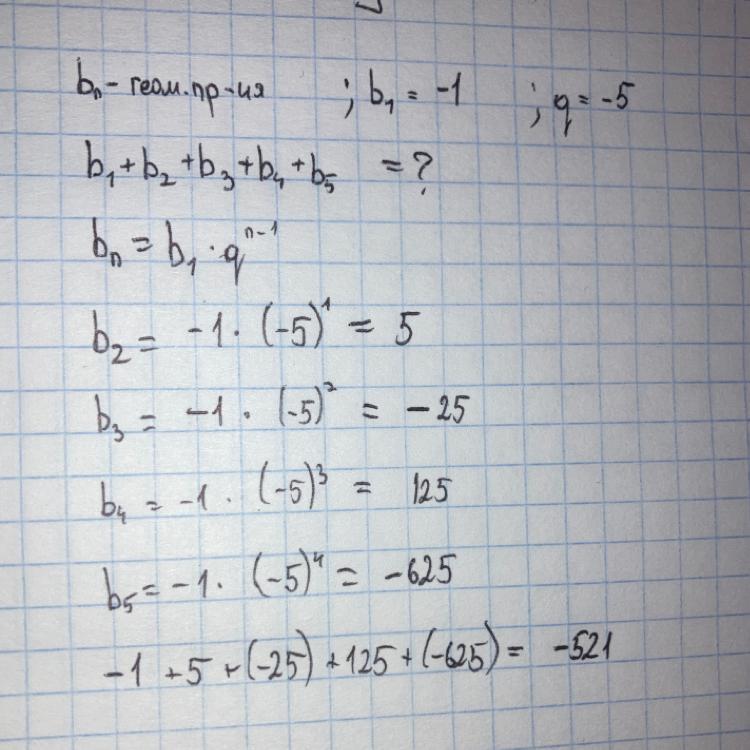 bₙ - геом. пр-ия ; b₁ = -1 ; q = -5
b₁ + b₂ + b₃ + b₄ + b₅ = ?
bₙ = b₁ · qⁿ⁻¹
b₂ = -1 · (-5)¹ = 5
b₃ = -1 · (-5)² = -25
b₄ = -1 · (-5)³ = 125
b₅ = -1 · (-5)⁴ = -625
-1 + 5 + (-25) + 125 + (-625) = -521